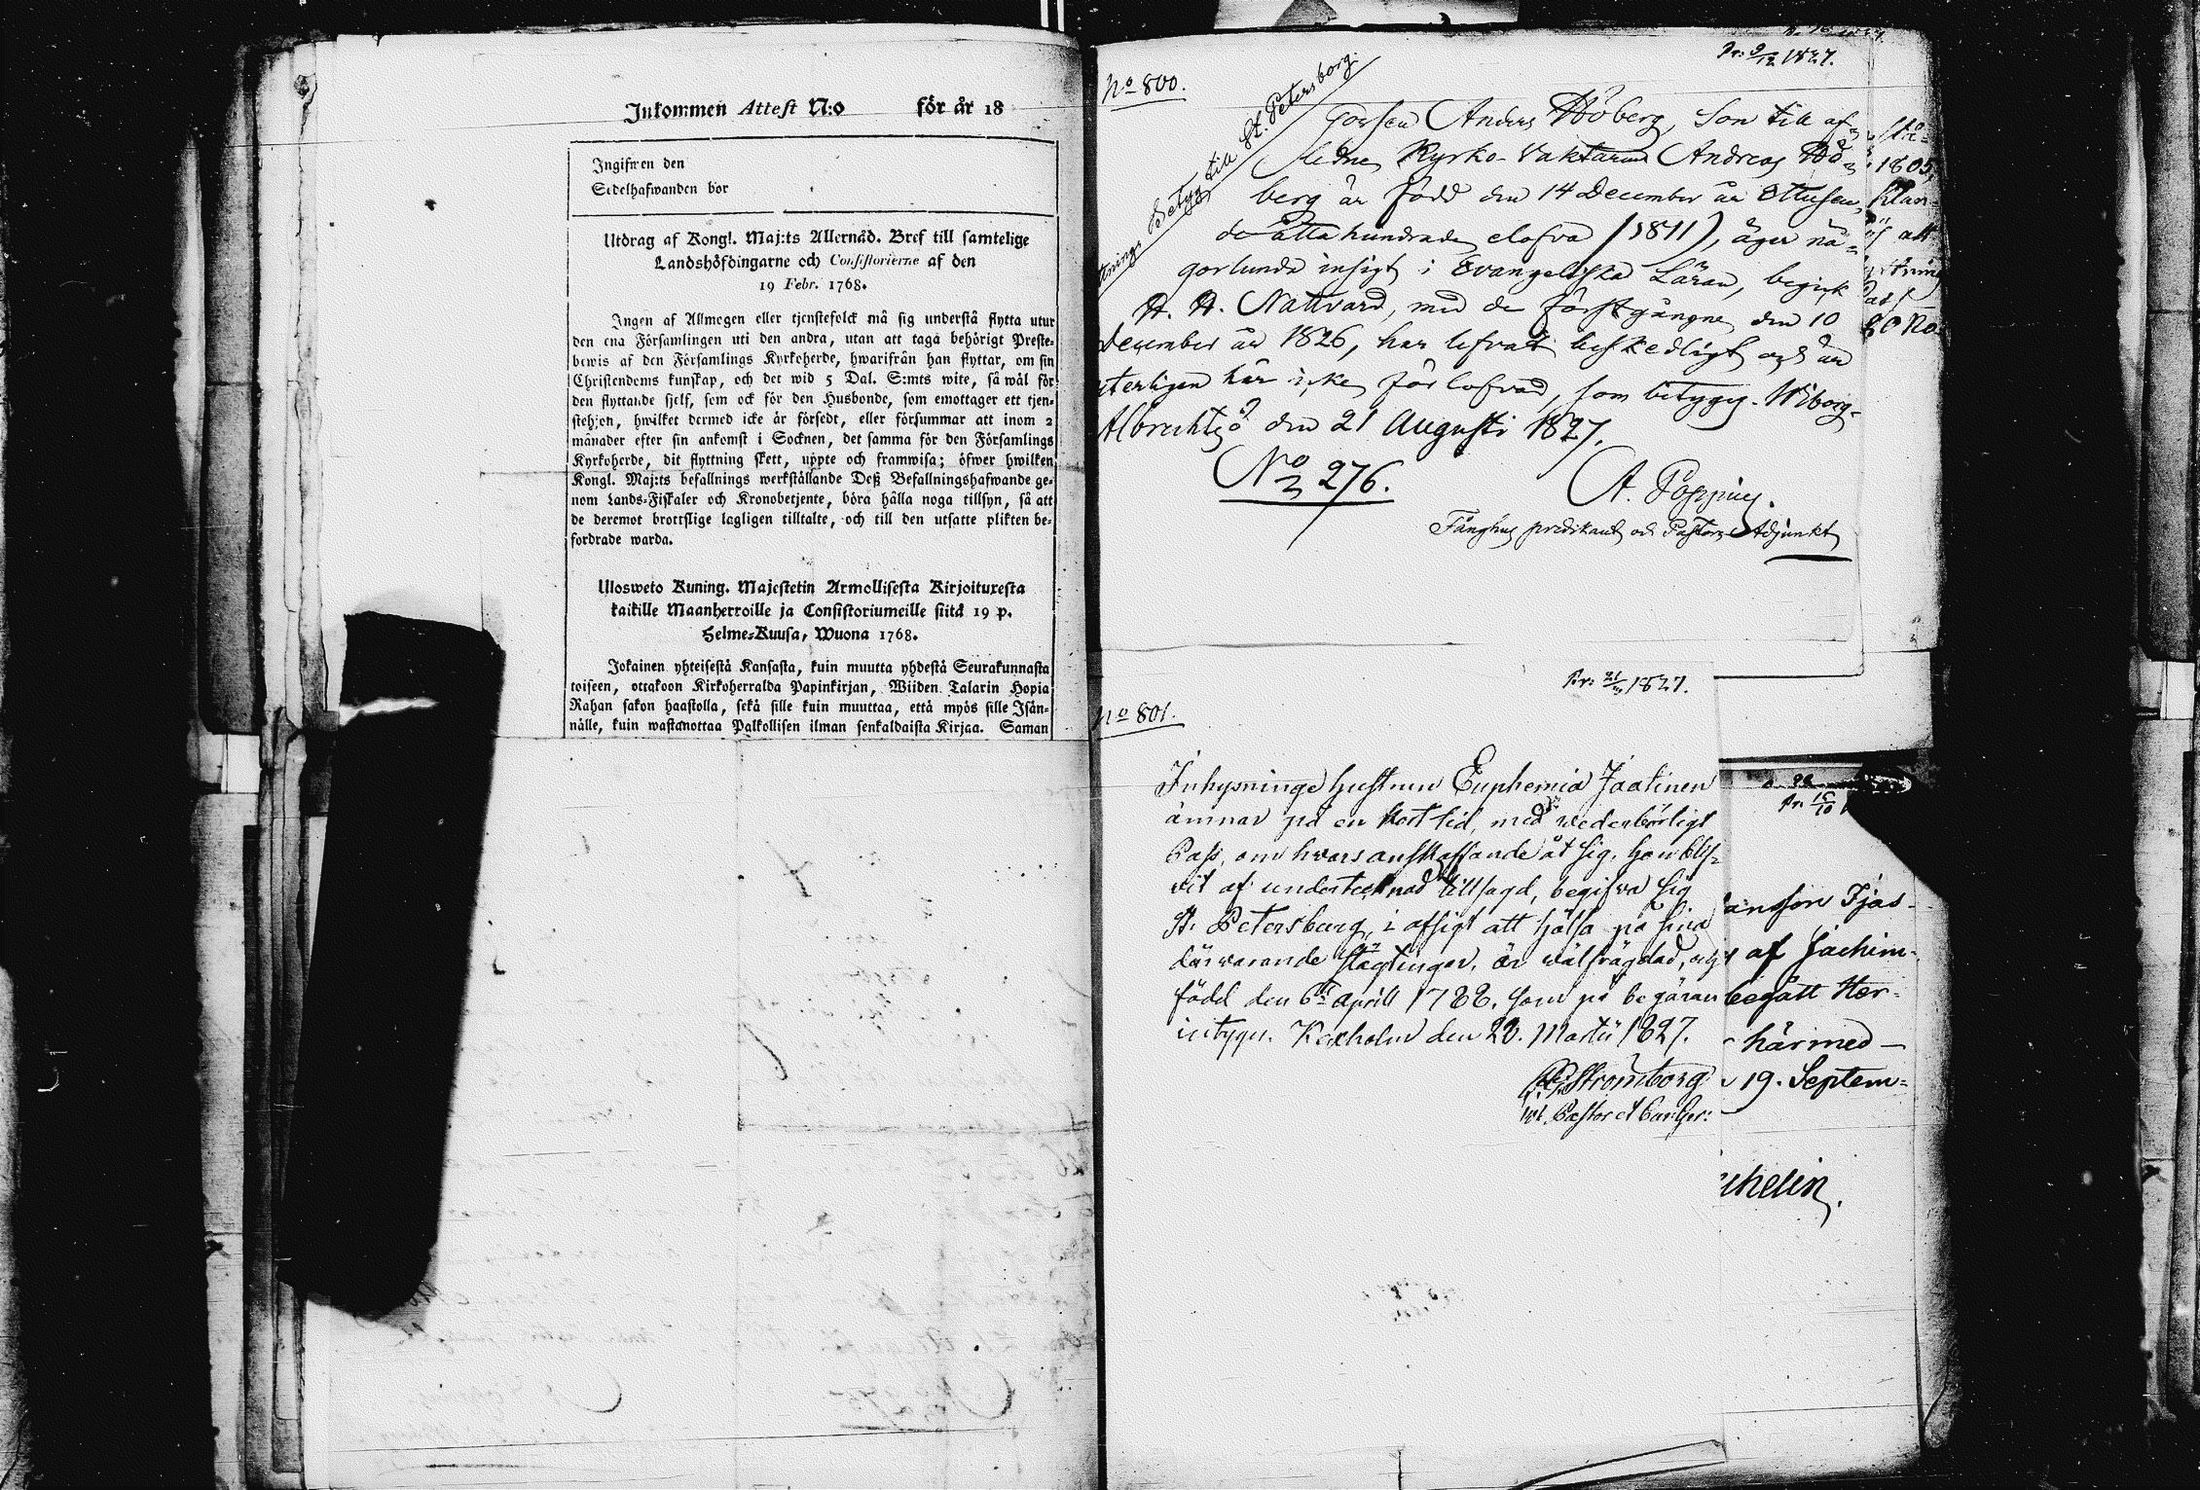 Inkommen Attest N:o för år 18
Ingifwen den
Sedelhafwanden bor
Utdrag af Kongl. Maj:ts Allernåd. Bref till samtelige
Landshöfdingarne och Consistorierne af den
19 Febr. 1768.
Ingen af Allmogen eller tjenstefolck må sig understå flytta utur
den ena Församlingen uti den andra, utan att taga behörigt Preste-
bewis af den Församlings Kyrkoherde, hwarifrån han flyttar, om sin
Christendoms kunskap, och det wid 5 Dal. S:mts wite, så wäl för
den flyttande sjelf, som ock för den Husbonde, som emottager ett tjen-
stehjon, hwilket dermed icke är försedt, eller försummar att inom 2
månader efter sin ankomst i Socknen, det samma för den Församlings
Kyrkoherde, dit flyttning skett, uppte och framwisa; öfwer hwilken
Kongl. Maj:ts befallnings werkställande Deß Befallningshafwande ge-
nom Lands-Fiskaler och Kronobetjente, böra hålla noga tillsyn, så att
de deremot brottslige lagligen tilltalte, och till den utsatte plikten be-
fordrade warda.
Ulosweto Kuning. Majestetin Armollisesta Kirjoituxesta
kaikille Maanherroille ja Consistoriumeille siitä 19 p.
Helme-Kuusa, Wuona 1768.
Jokainen yhteisestä Kansasta, kuin muutta yhdestä Seurakunnasta
toiseen, ottakoon Kirkoherralda Papinkirjan, Wiiden Talarin Hopia
Rahan sakon haastolla, sekä sille kuin muuttaa, että myös sille Isän-
nälle, kuin wastanottaa Palkollisen ilman senkaldaista Kirjaa. Saman
No 800.
Pr: 9/12 1827.
Betyg till St. Petersborg.
Gossen Anders Höberg, Son till af-
ledne Kyrko-Vaktaren Andreas Hö-
berg är född den 14 December år Ettusen-
de åtta hundrade elofva (1811), äger nå-
gorlunda insigt i Evangeliska Läran, begick
H. H. Nattvard, med de förstgångne den 10
December år 1826, har lefvat beskedligt och är
veterligen här icke förlofvad, som betygas. Wiborg-
Albrechtsjö den 21 Augusti 1827.
No 276.
A. Poppius.
Fånghus predikant och Pastors Adjunkt
1805,
att
No 801.
Pr: 21/3 1827.
Inhysninge hustrun Euphemia Jaatinen
ämnar på en kort tid, med wederbörligt
Pass, om hwars anskaffande åt sig, hon blif-
vit af undertecknad tillsagd, begifva sig
St. Petersburg, i afsigt att hälsa på sina
därwarande slägtingar, är wälfrägdad, och
född den 6te April 1788. som på begäran
intygar. Kexholm den 20. Martii 1827.
Strömborg
vot. Pastor
Pr. 15/10
ansson Tjäs-
af Jachim-
begått Her-
härmed
19. Septem-
helin.